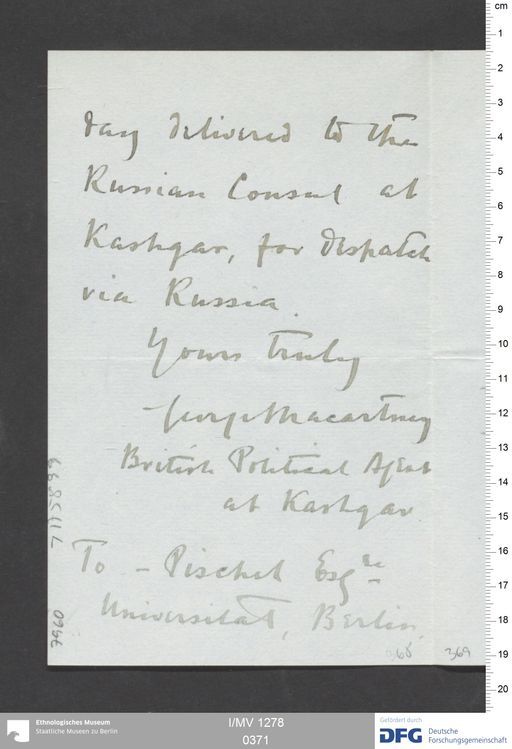 day delivered to the
Russian Consul at
Kashgar, for dispatch
via Russia.
Yours truly
George Macartney
British Political Agent
at Kashgar
To - Pischel Esqre
Universität, Berlin.
7960
368
369
cm
1
2
3
4
5
6
7
8
9
10
11
12
13
14
15
16
17
18
19
20
Ethnologisches Museum
Staatliche Museen zu Berlin
I/MV 1278
0371
Gefördert durch
DFG Deutsche
Forschungsgemeinschaft